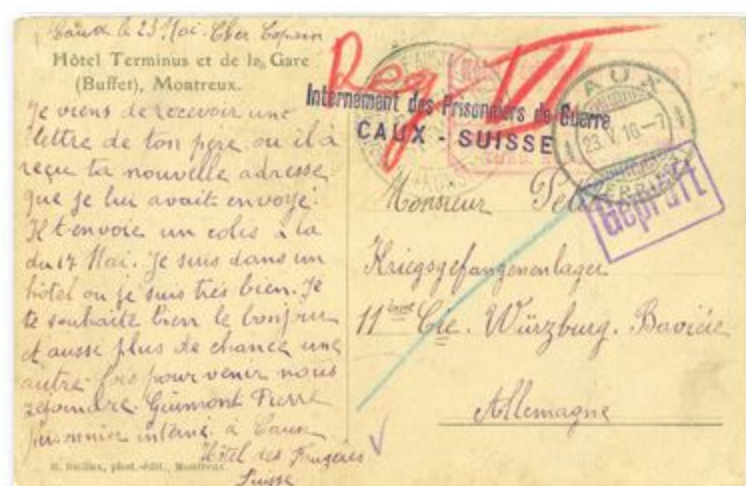 Caux le 23 Mai. Cher Copain
Hôtel Terminus et de la Gare
(Buffet), Montreux.
Je viens de recevoir une
lettre de ton père ou il à
reçu ta nouvelle adresse
que je lui avait envoyé.
Il t'envoie un colis à la
du 17 Mai. Je suis dans un
hôtel ou je suis très bien. Je
te souhaite bien le bonjour
et aussi plus de chance une
autre fois pour venir nous
rejoindre. Guimont Pierre
Prisonnier interné à Caux
Hôtel des Fougères
Suisse
phot.-édit., Montreux
Reg VI
Internement des Prisonniers de Guerre
CAUX - SUISSE
CAUX
23.V.16-7
Geprüft
Monsieur
Kriegsgefangenenlager
11ème Cie. Würzburg. Bavière
Allemagne